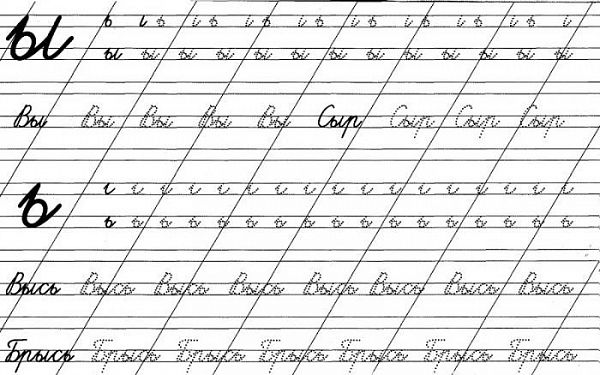 ы
ь ı ь ı ь ı ь ı ь ı ь ı ь ı ь ı ь ı ь ı ь ı
ы ы ы ы ы ы ы ы ы ы ы ы ы ы ы ы ы
Вы Вы Вы Вы Вы Сыр Сыр Сыр Сыр
ь
ı ı ı ı ı ı ı ı ı ı ı ı ı ı ı ı ı
ь ь ь ь ь ь ь ь ь ь ь ь ь ь ь ь ь
Высь Высь Высь Высь Высь Высь Высь Высь
Брысь Брысь Брысь Брысь Брысь Брысь Брысь